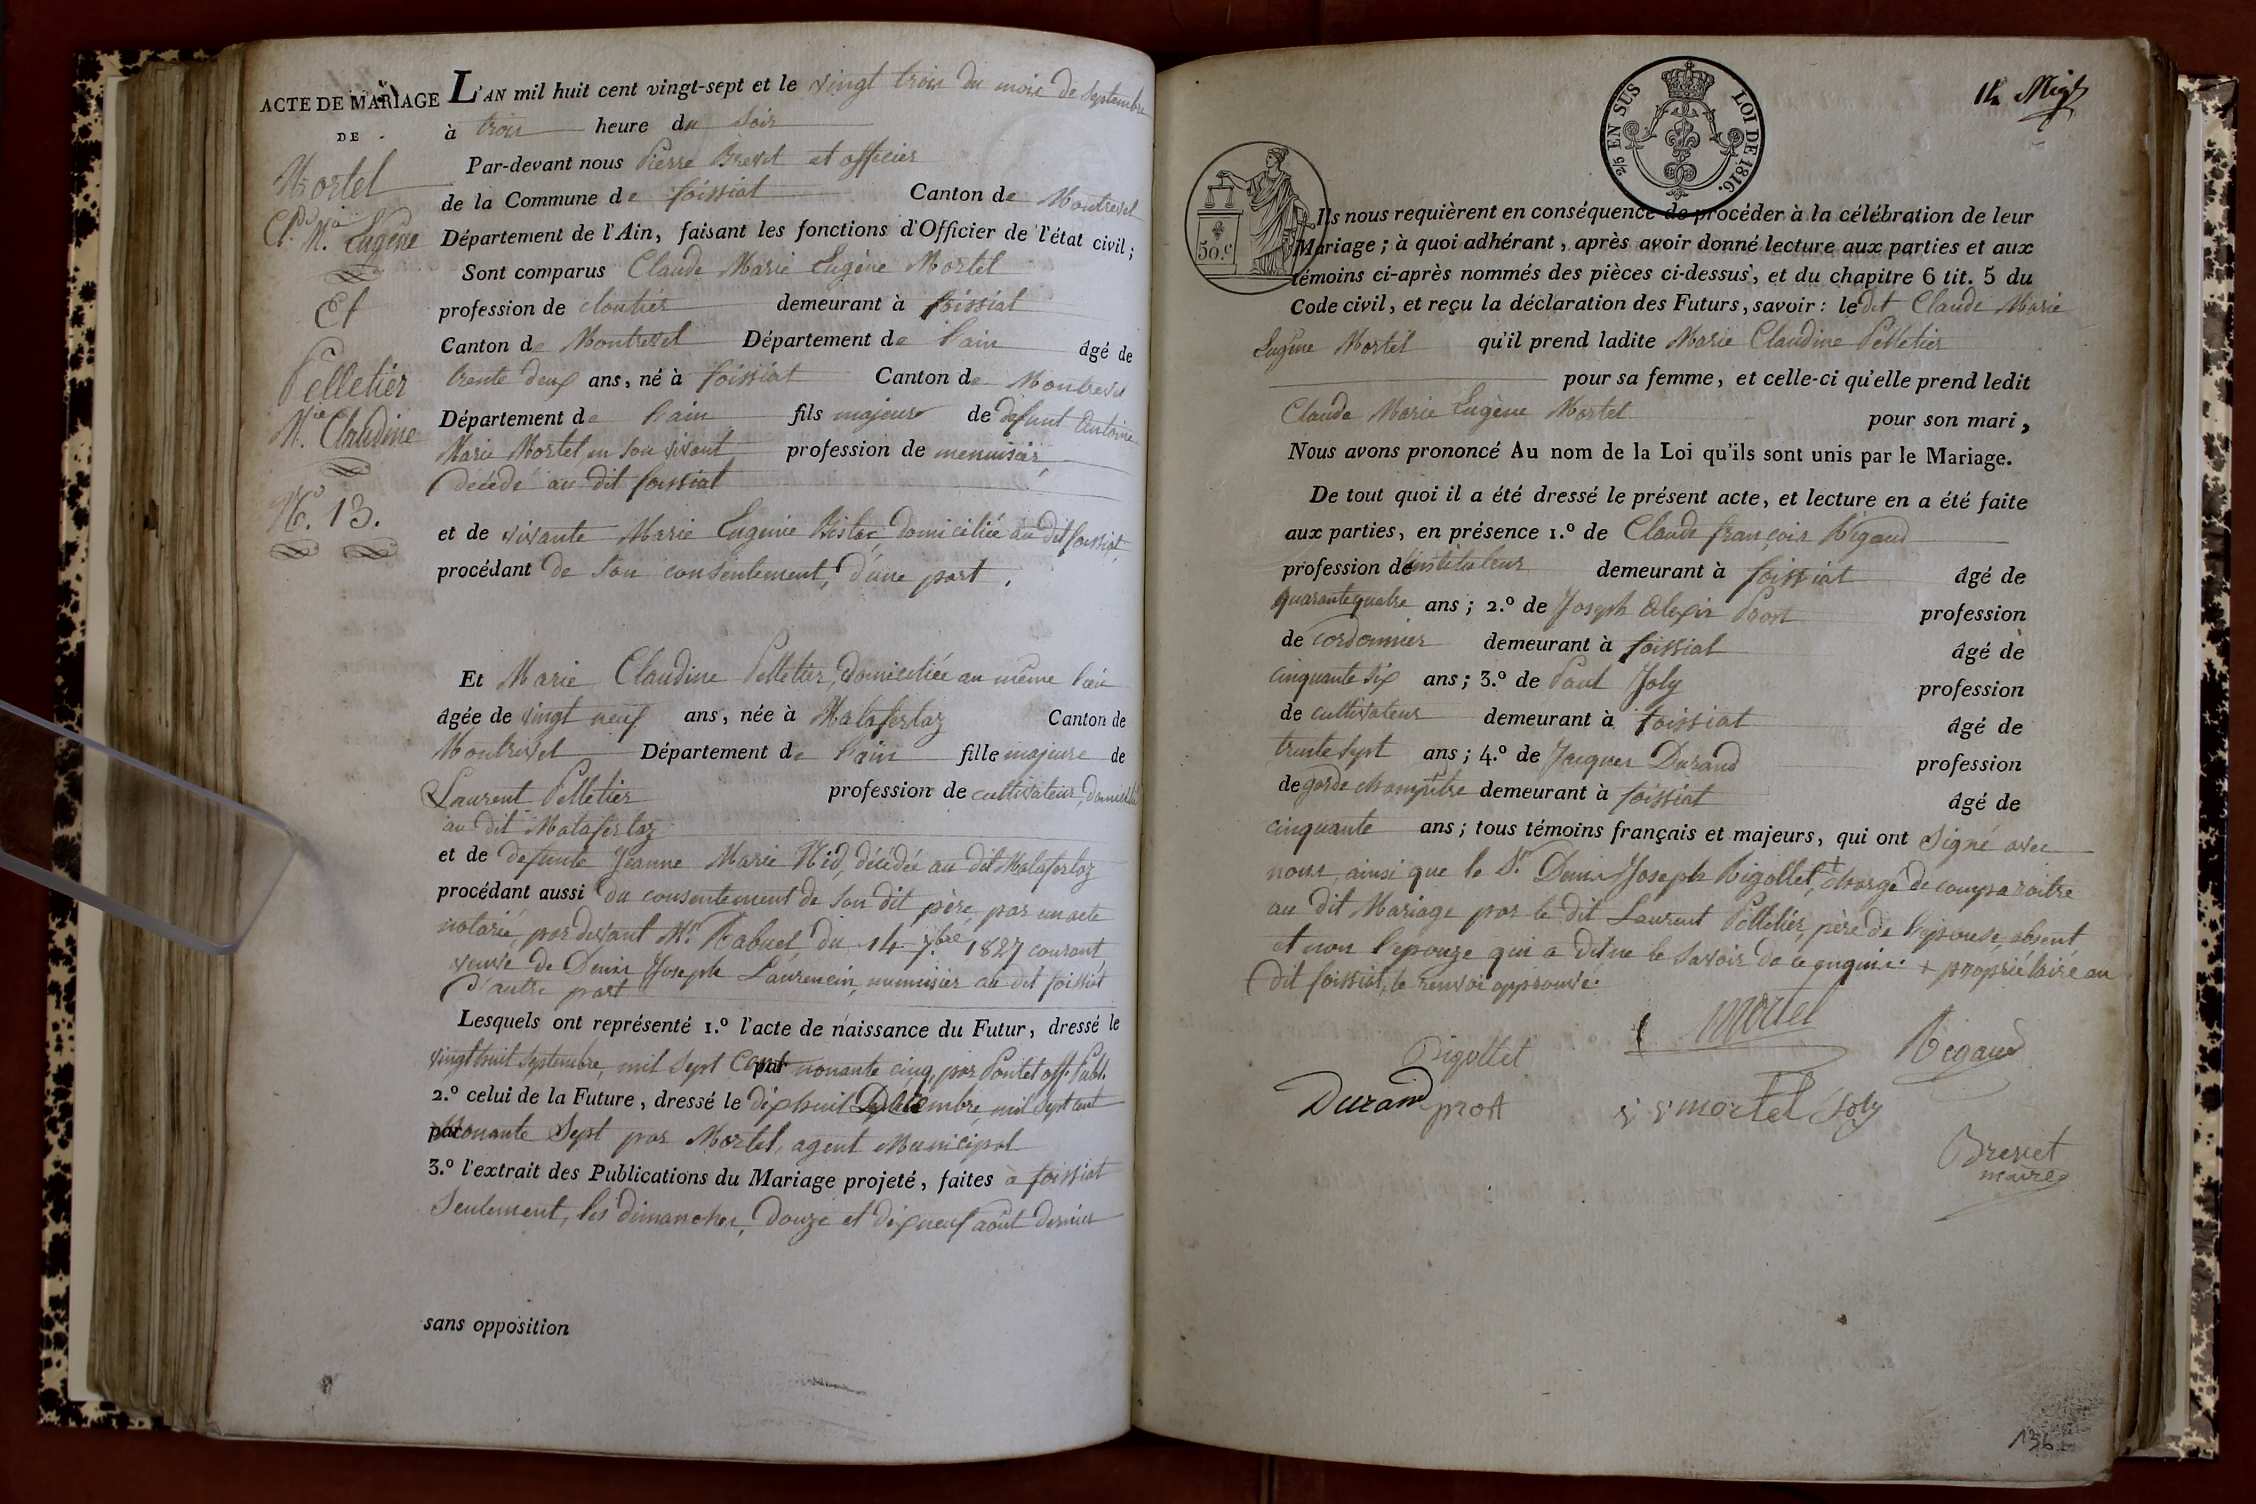 ACTE DE MARIAGE
DE
Mortel
Cl.de M.ie Eugène
Et
Pelletier
M.ie Claudine
N.o 13.
L'AN mil huit cent vingt-sept et le vingt trois du mois de septembre
à trois heure du soir
Par-devant nous Pierre Brevet et officier
de la Commune de foissiat Canton de Montrevel
Département de l'Ain, faisant les fonctions d'Officier de l'état civil;
Sont comparus Claude Marie Eugène Mortel
profession de cloutier demeurant à foissiat
Canton de Montrevel Département de l'ain âgé de
trente deux ans, né à foissiat Canton de Montrevel
Département de l'ain fils majeur de défunt Antoine
Marie Mortel en son vivant profession de menuisier,
décédé au dit foissiat
et de vivante Marie Eugenie domiciliée au dit foissiat,
procédant de son consentement, d'une part.
Et Marie Claudine Pelletier, domiciliée au même lieu
âgée de vingt neuf ans, née à Malafertaz Canton de
Montrevel Département de l'ain fille majeure de
Laurent Pelletier profession de cultivateur, domicilié
au dit Malafertaz
et de defunte Jeanne Marie Nid, décédée au dit Malafertaz
procédant aussi du consentement de son dit père, par un acte
notarié, par devant M.e Rabuel, du 14 7.bre 1827 courant,
veuve de Denis Joseph Laurencin, menuisier au dit foissiat
d'autre part
Lesquels ont représenté 1.º l'acte de naissance du Futur, dressé le
vingt huit septembre, mil sept Cent nonante cinq, par Pontet off. Publ.
2.º celui de la Future, dressé le dix huit Décembre mil sept cent
nonante Sept par Mortel, agent Municipal
3.º l'extrait des Publications du Mariage projeté, faites à foissiat
Seulement, les dimanches, Douze et dix neuf août dernier
sans opposition
2/5 EN SUS
LOI DE 1816.
50.c
Ils nous requièrent en conséquence de procéder à la célébration de leur
Mariage; à quoi adhérant, après avoir donné lecture aux parties et aux
témoins ci-après nommés des pièces ci-dessus, et du chapitre 6 tit. 5 du
Code civil, et reçu la déclaration des Futurs, savoir: le dit Claude Marie
Eugène Mortel qu'il prend ladite Marie Claudine Pelletier
pour sa femme, et celle-ci qu'elle prend ledit
Claude Marie Eugène Mortel pour son mari,
Nous avons prononcé Au nom de la Loi qu'ils sont unis par le Mariage.
De tout quoi il a été dressé le présent acte, et lecture en a été faite
aux parties, en présence 1.º de Claude françois Rigaud
profession d'instituteur demeurant à foissiat âgé de
quarante quatre ans; 2.º de Joseph Alexis Prost profession
de cordonnier demeurant à foissiat âgé de
cinquante six ans; 3.º de Paul Joly profession
de cultivateur demeurant à foissiat âgé de
trente sept ans; 4.º de Jacques Durand profession
de garde champêtre demeurant à foissiat âgé de
cinquante ans; tous témoins français et majeurs, qui ont signé avec
nous, ainsi que le S.r Denis Joseph Rigollet, + chargé de comparoitre
au dit Mariage par le dit Laurent Pelletier, père de l'épouse, absent
et non l'epouze qui a dit ne le savoir de ce enquise. + propriétaire au
dit foissiat, le renvoi approuvé.
Mortel
Rigollet
Rigaud
Durand
prost
mortel
Joly
Brevet
maire
136